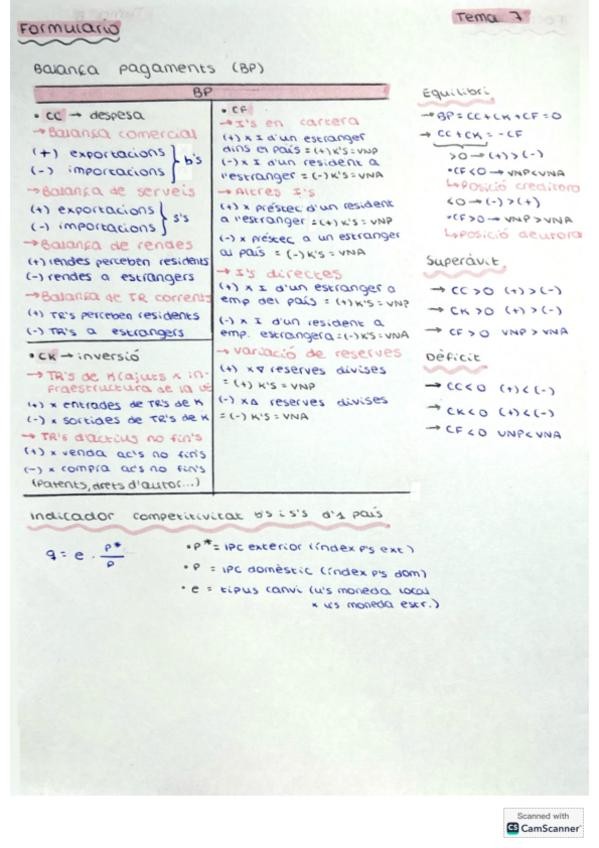 Formulario
Tema 7
Balança pagaments (BP)
BP
• CC → despesa
→ Balança comercial
(+) exportacions
(-) importacions
} b's
→ Balança de serveis
(+) exportacions
(-) importacions
} s's
→ Balança de rendes
(+) rendes perceben residents
(-) rendes a estrangers
→ Balança de TR corrents
(+) TR's perceben residents
(-) TR's a estrangers
• CK → inversió
→ TR's de K (ajuts x in-
fraestructura de la UE
(+) x entrades de TR's de K
(-) x sortides de TR's de K
→ TR's d'actius no fin's
(+) x venda ac's no fin's
(-) x compra ac's no fin's
(patents, drets d'autor...)
• CF
→ I's en cartera
(+) x I d'un estranger
dins el país = (+) K's = VNP
(-) x I d'un resident a
l'estranger = (-) K's = VNA
→ Altres I's
(+) x préstec d'un resident
a l'estranger = (+) K's = VNP
(-) x préstec a un estranger
al país = (-) K's = VNA
→ I's directes
(+) x I d'un estranger a
emp del país = (+) K's = VNP
(-) x I d'un resident a
emp. estrangera = (-) K's = VNA
→ Variació de reserves
(+) x ∇ reserves divises
= (+) K's = VNP
(-) x Δ reserves divises
= (-) K's = VNA
Equilibri
→ BP = CC + CK + CF = 0
→ CC + CK = -CF
>0 → (+) > (-)
• CF < 0 → VNP < VNA
↳ Posició creditora
<0 → (-) > (+)
• CF > 0 → VNP > VNA
↳ Posició deutora
Superàvit
→ CC > 0 (+) > (-)
→ CK > 0 (+) > (-)
→ CF > 0 VNP > VNA
Dèficit
→ CC < 0 (+) < (-)
→ CK < 0 (+) < (-)
→ CF < 0 VNP < VNA
Indicador competitivitat b's i s's d'1 país
q = e · P*/P
• P* = IPC exterior (índex p's ext)
• P = IPC domèstic (índex p's dom)
• e = tipus canvi (u's moneda local
x u's moneda estr.)
Scanned with
CS CamScanner